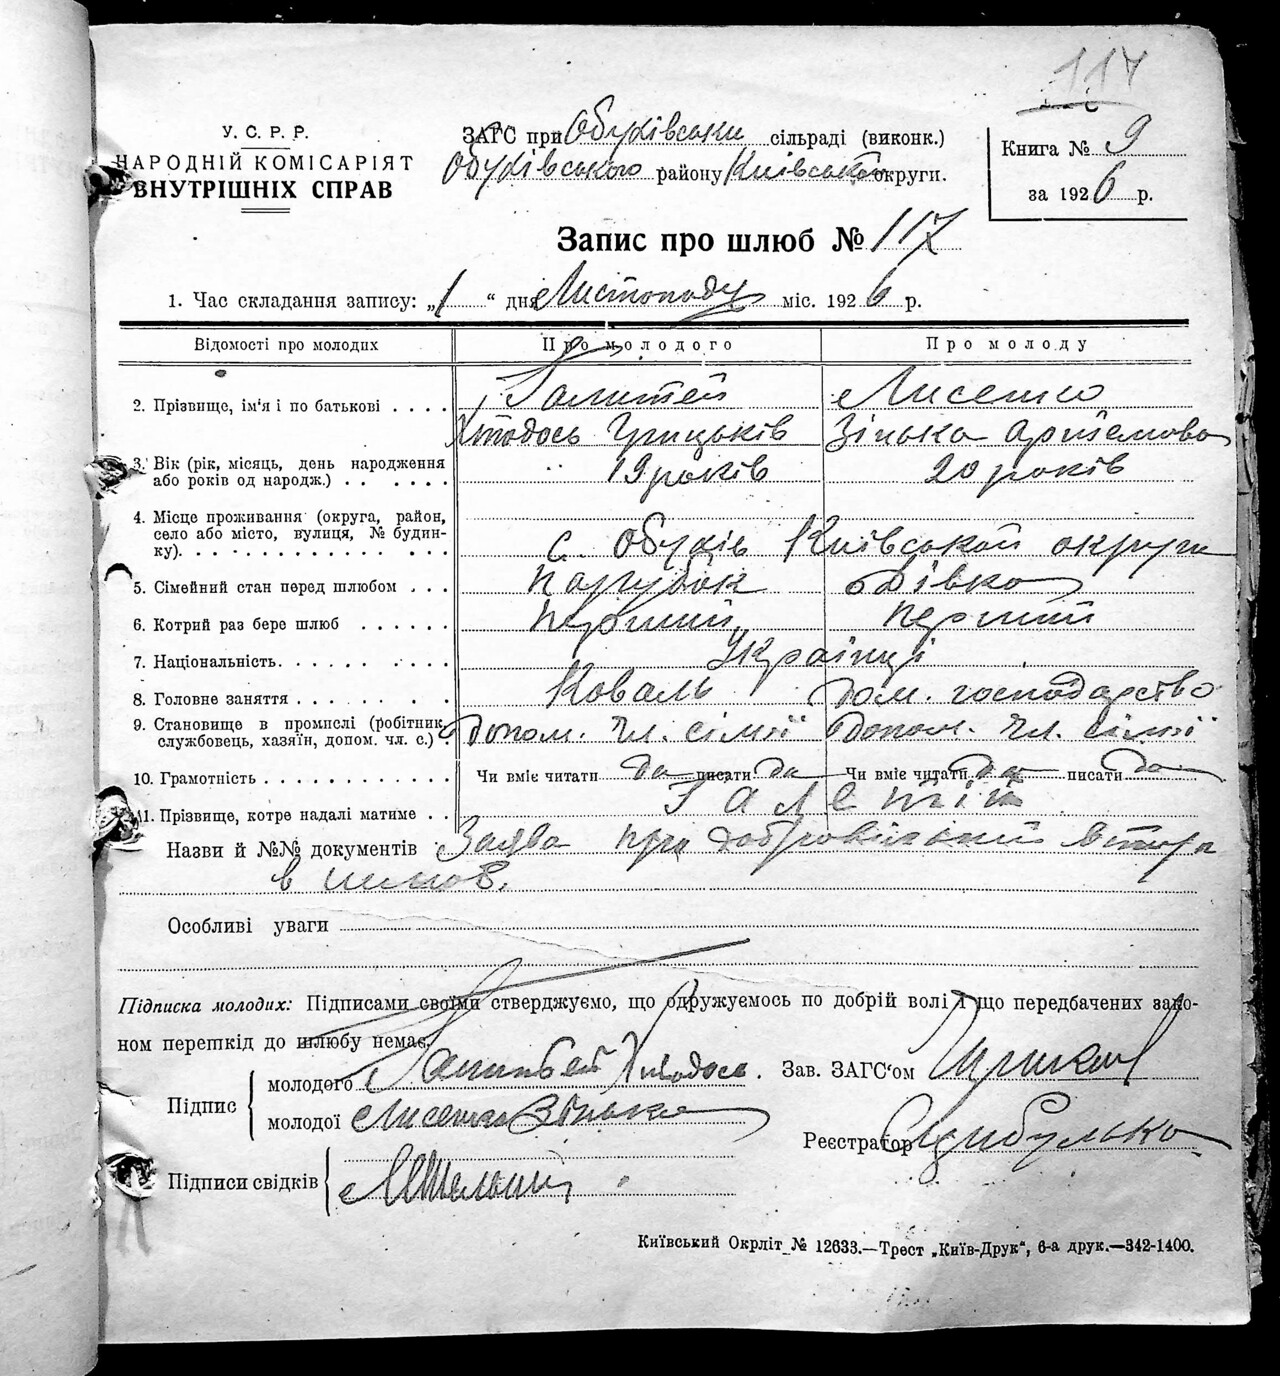 117
У. С. Р. Р.
НАРОДНІЙ КОМІСАРІЯТ
ВНУТРІШНІХ СПРАВ
ЗАГС при Обухівські сільраді (виконк.)
Обухівського району Київської округи.
Книга № 9
за 1926 р.
Запис про шлюб № 117
1. Час складання запису: „1“ дня Листопаду міс. 1926 р.
Відомості про молодих Про молодого Про молоду
2. Прізвище, ім'я і по батькові . . . . Лисенко
Хтодось Грицьків Зінька Артемова
3. Вік (рік, місяць, день народження
або років од народж.) . . . . . . 19 років 20 років
4. Місце проживання (округа, район,
село або місто, вулиця, № будин-
ку). . . . . . . . . . . . . . с. Обухів Київської округи
5. Сімейний стан перед шлюбом . . . Парубок Дівка
6. Котрий раз бере шлюб . . . . . . Перший Перший
7. Національність. . . . . . . . . . Українці
8. Головне заняття . . . . . . . . . Коваль Дом. господарство
9. Становище в промислі (робітник,
службовець, хазяїн, допом. чл. с.) . Допом. чл. сімії Допом. чл. сімії
10. Грамотність . . . . . . . . . . . . Чи вміє читати да писати да Чи вміє читати да писати да
11. Прізвище, котре надалі матиме . .
Назви й №№ документів Заява про добровільний вступ
в шлюб.
Особливі уваги
Підписка молодих: Підписами своїми стверджуємо, що одружуємось по добрій волі і що передбачених зако-
ном перешкід до шлюбу немає.
Підпис
молодого Хтодось.
молодої Лисенко Зінька
Зав. ЗАГС'ом
Реєстратор Цибулько
Підписи свідків
Київський Окрліт № 12633.—Трест „Київ-Друк“, 6-а друк.—342-1400.